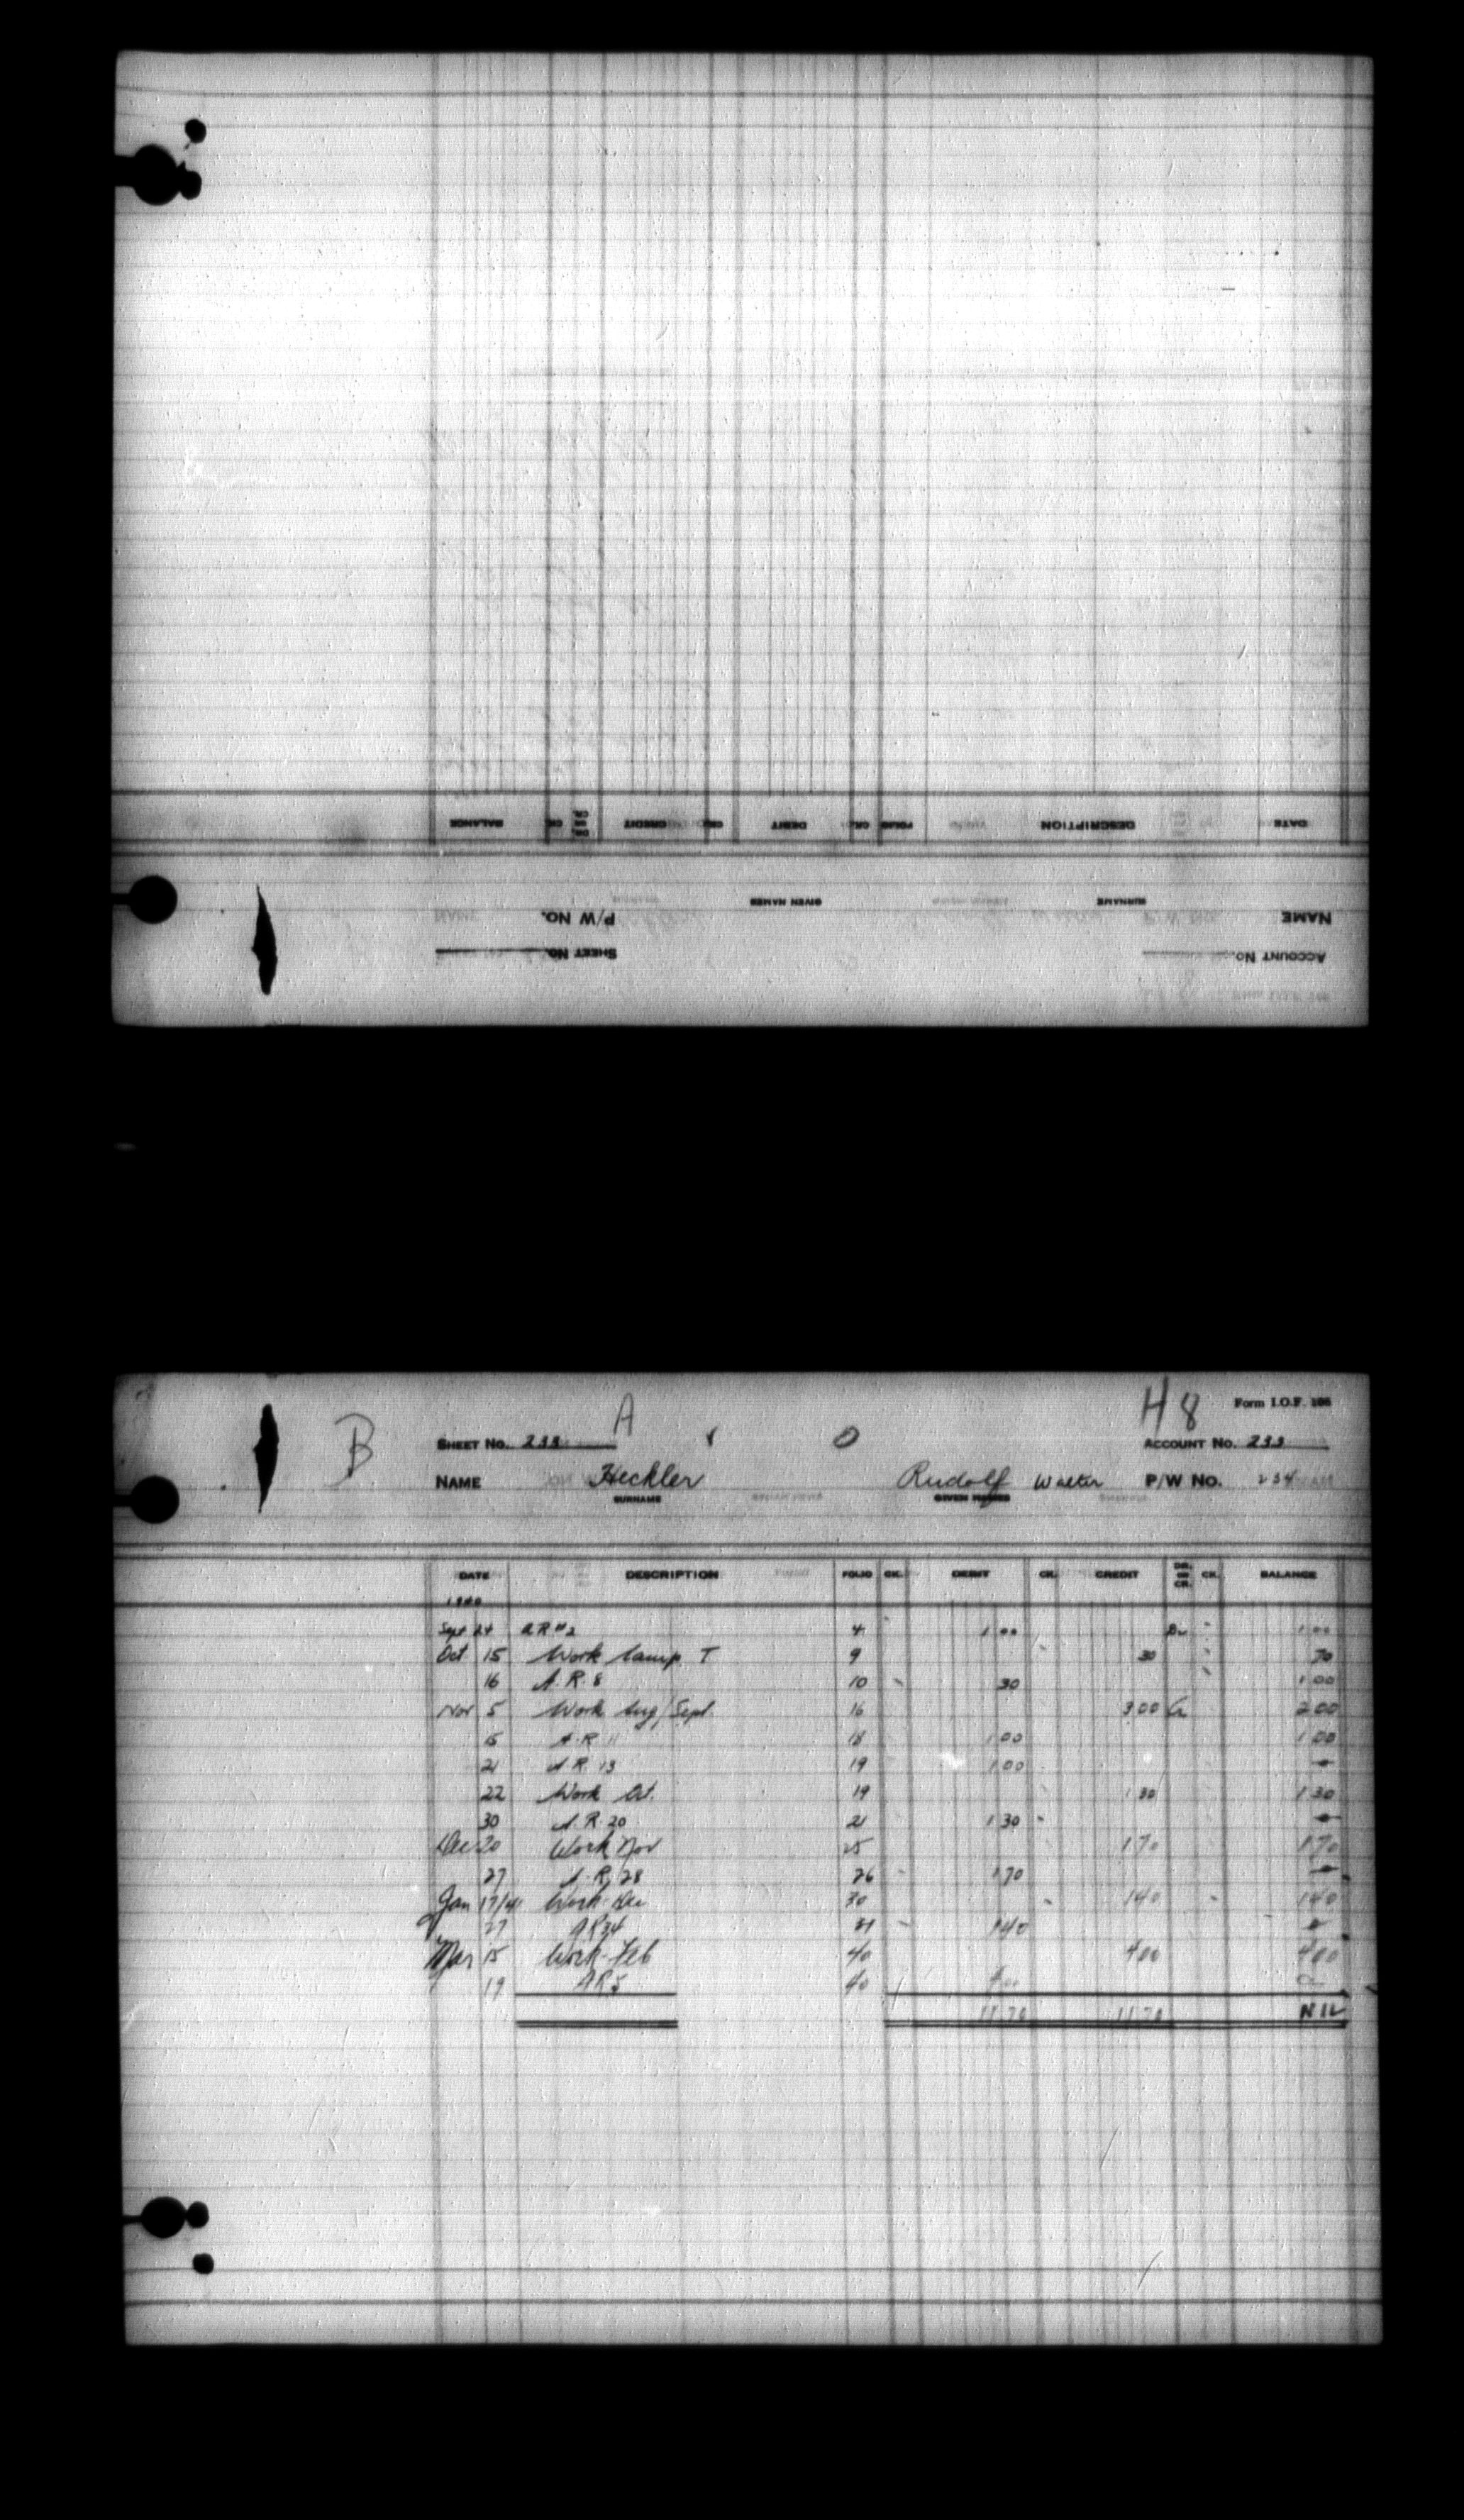 BALANCE CK. DR. OR CR. CREDIT CK. DEBIT CK. FOLIO DESCRIPTION DATE
P/W NO. GIVEN NAMES SURNAME NAME
SHEET NO. ACCOUNT NO.
A H 8 Form I.O.F. 106
B SHEET NO. 233 O ACCOUNT NO. 233
NAME Heckler Rudolf Walter P/W NO. 234
SURNAME GIVEN NAMES
DATE DESCRIPTION FOLIO CK. DEBIT CK. CREDIT DR. OR CR. CK. BALANCE
1940
Sept 24 A R #2 4 1 00 Dr 1 00
Oct 15 Work Camp T 9 30 70
16 A.R. 8 10 30 1 00
Nov 5 Work Aug/Sept. 16 3 00 Cr 2 00
15 A.R 11 18 1 00 1 00
21 A R. 13 19 1 00 0
22 Work Oct. 19 1 30 1 30
30 A.R. 20 21 1 30 0
Dec 20 Work Nov 25 1 70 1 70
27 A.R. 28 26 1 70 0
Jan 17/41 Work-Dec 30 1 40 1 40
27 AR34 31 1 40 0
Mar 15 Work-Feb 40 4 00 4 00
19 AR5 40 4 00
11 70 11 70 NIL